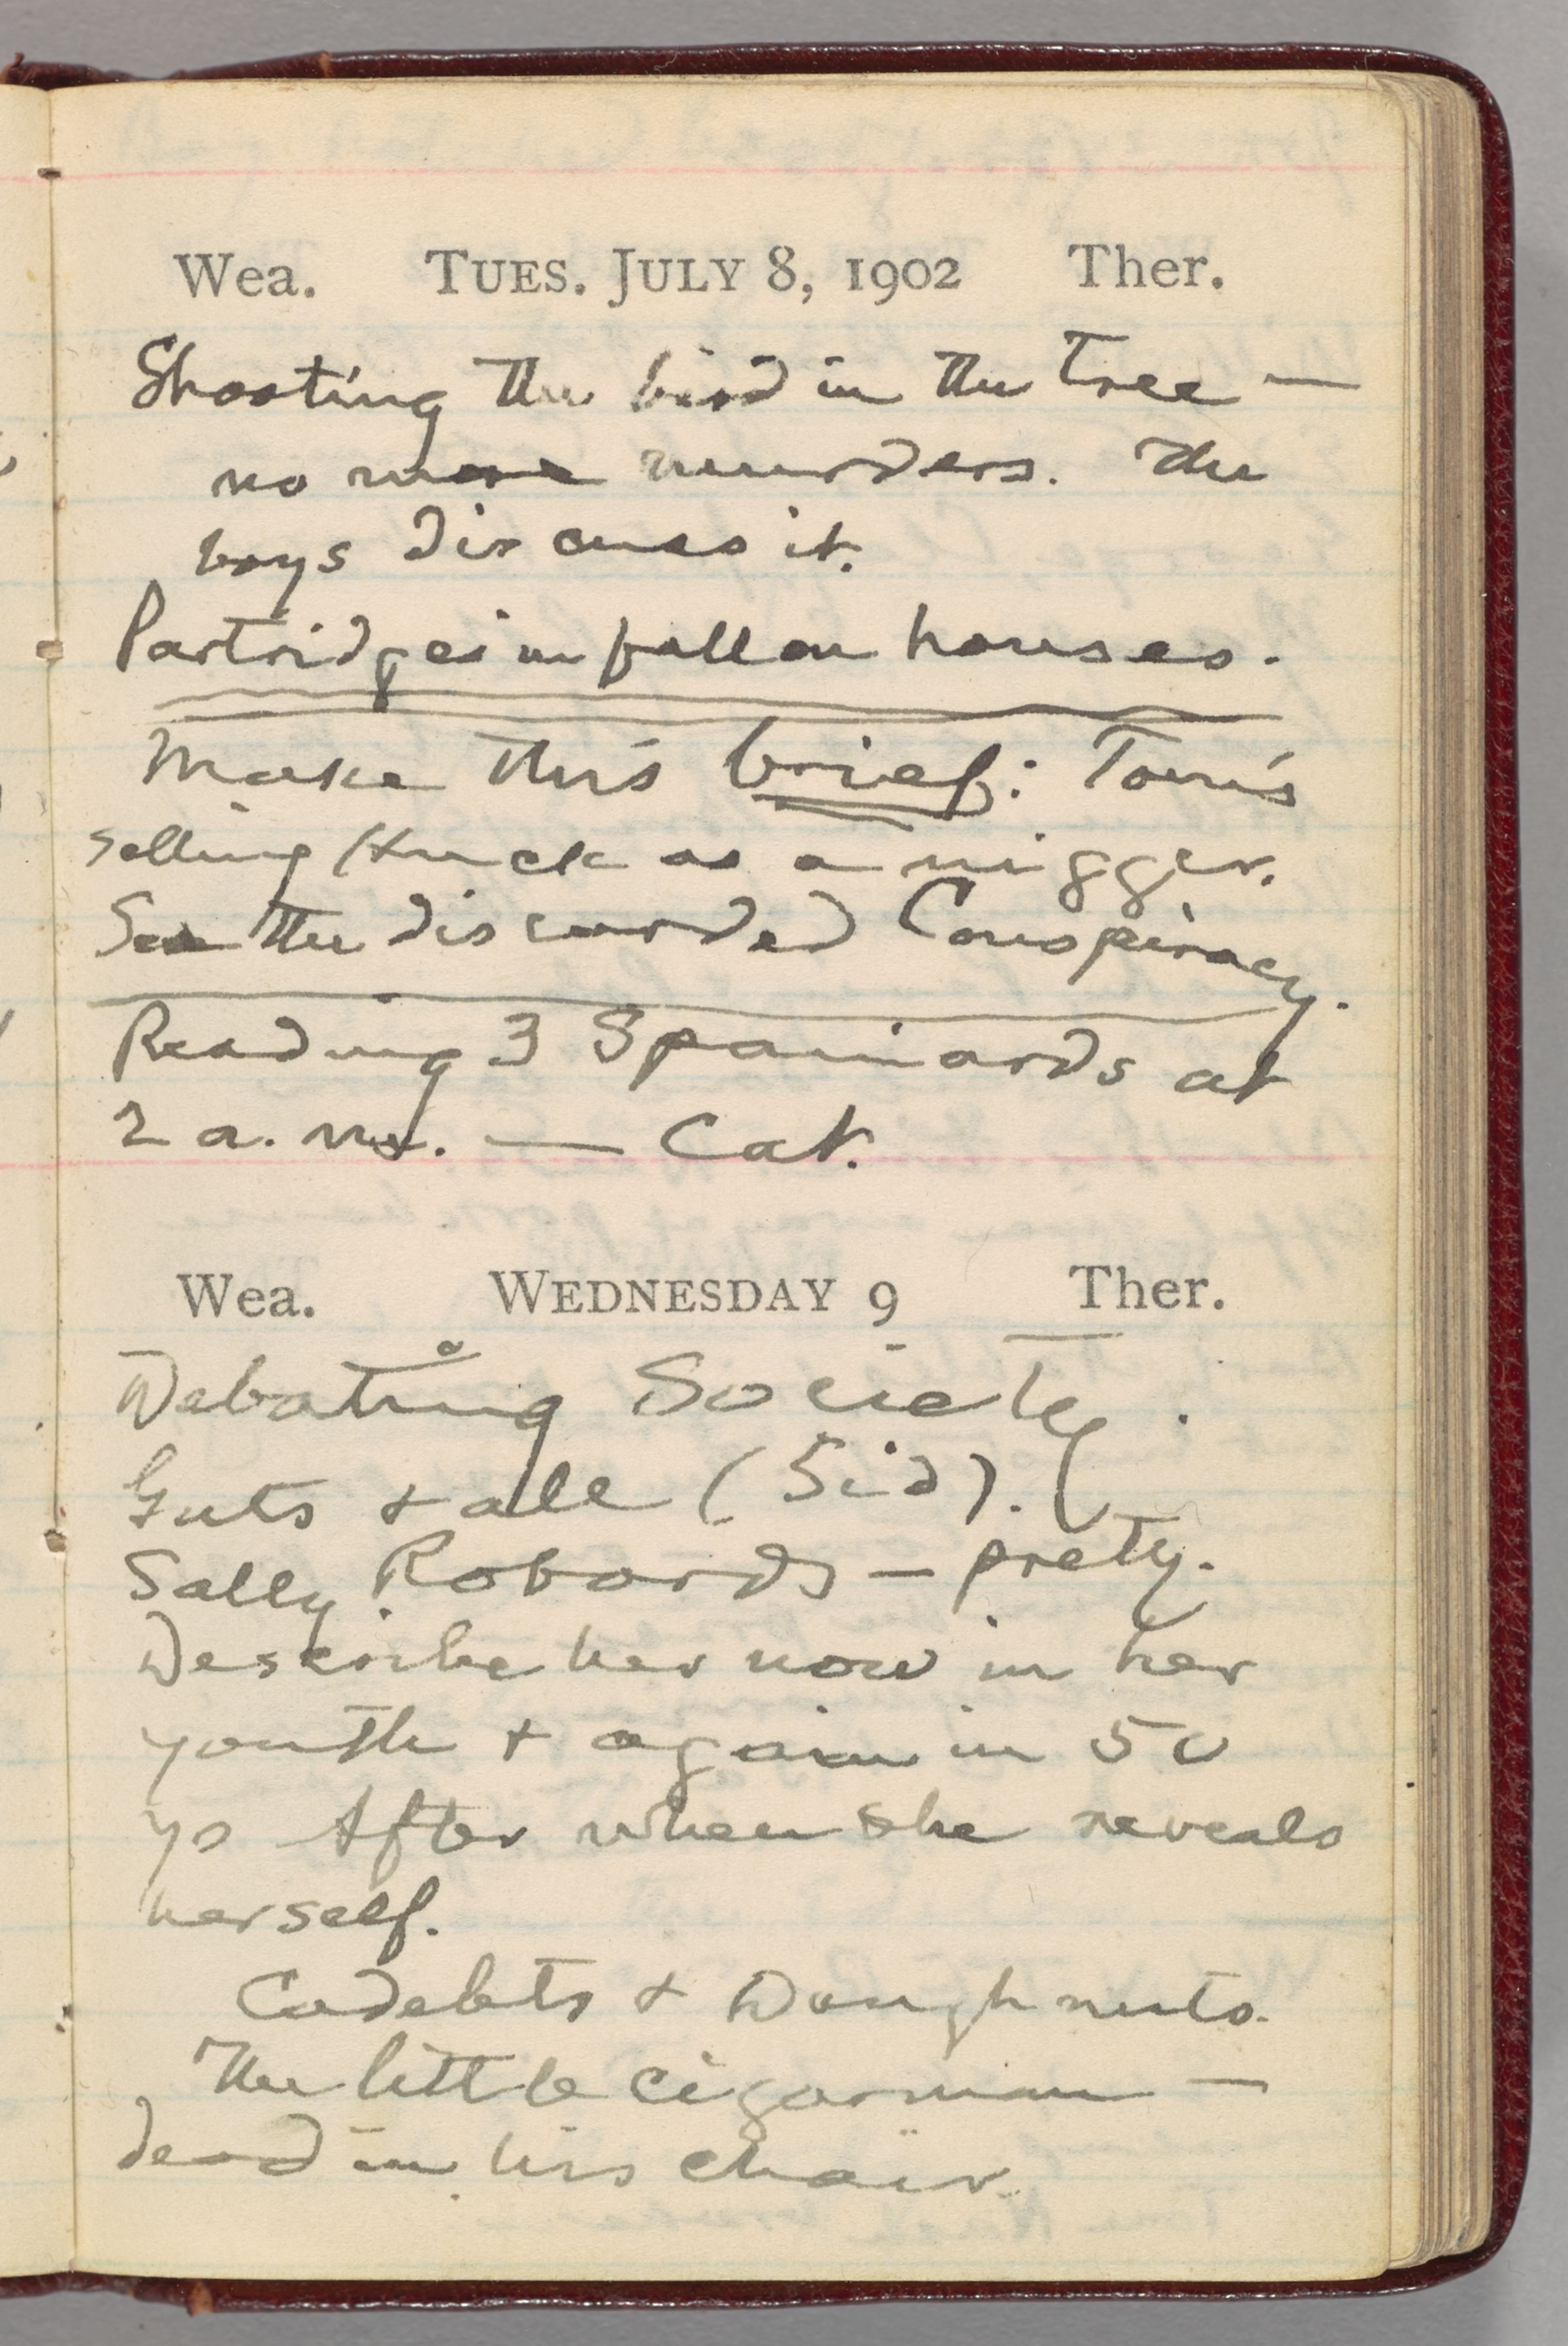 Wea. TUES. JULY 8, 1902 Ther.
Shooting the bird in the tree —
no more murders. The
boys discuss it.
Partridges in fallen houses.
Make this brief: Tom's
selling Huck as a nigger.
See the discarded Conspiracy.
Reading 3 Spaniards at
2 a. m. — Cat.
Wea. WEDNESDAY 9 Ther.
Debating Society.
Guts & all (Sid).
Sally Robards — pretty.
Describe her now in her
youth & again in 50
ys After when she reveals
herself.
Cadets & Doughnuts.
The little cigarman —
dead in his chair.